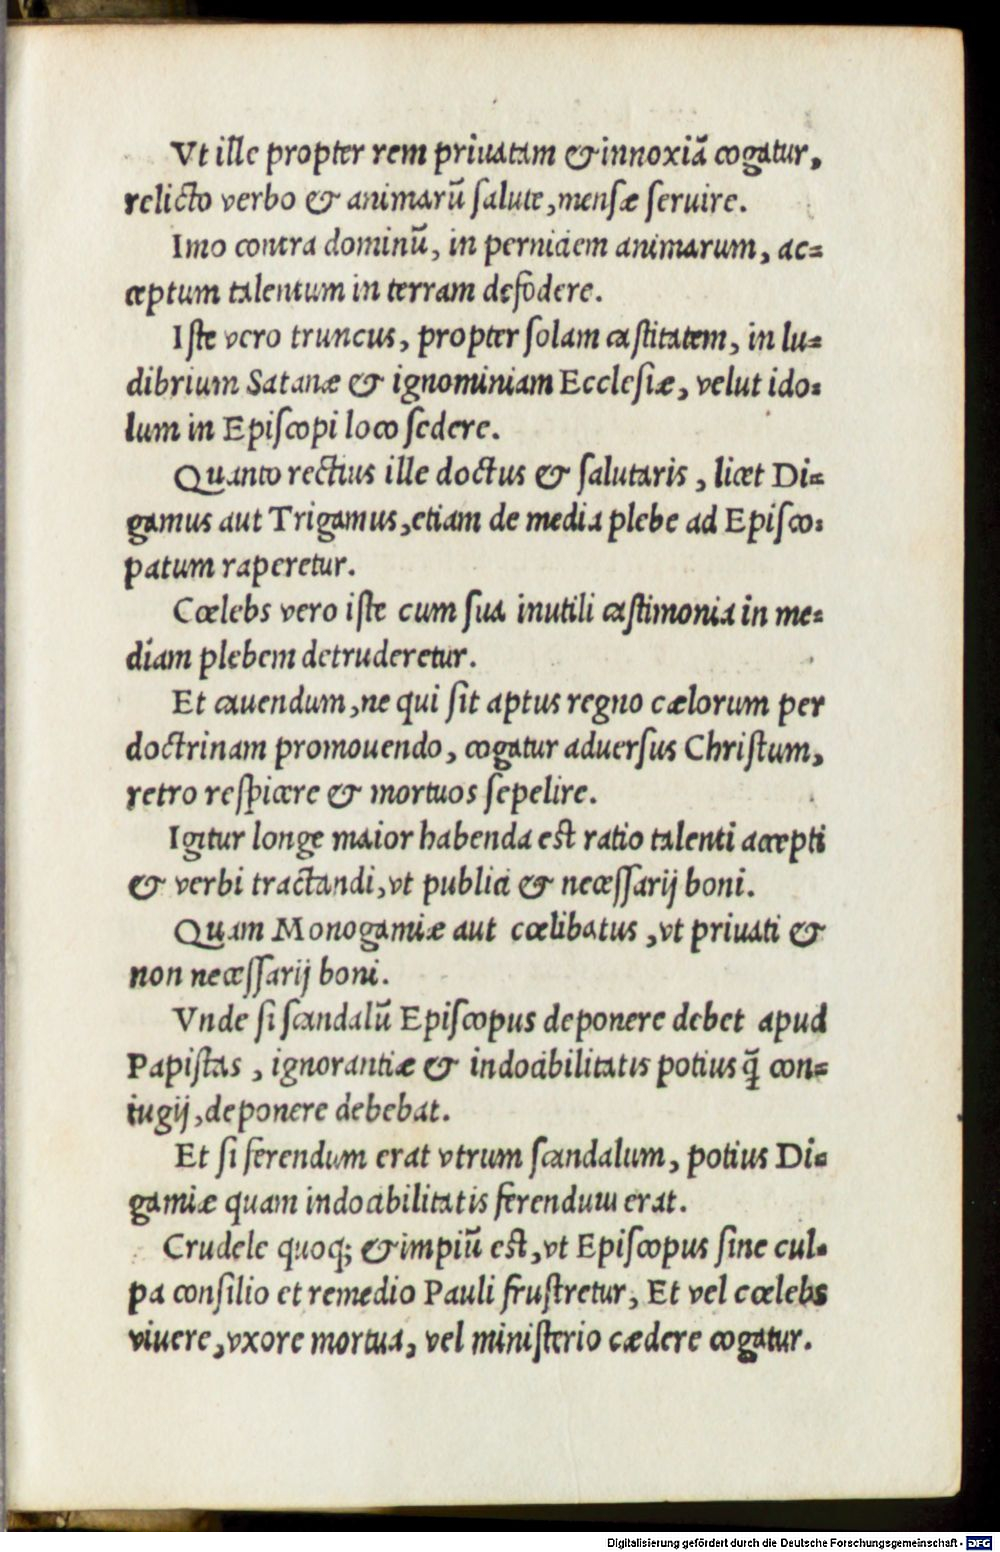 Vt ille propter rem priuatam & innoxiā cogatur,
relicto verbo & animarū ſalute, menſæ ſeruire.
Imo contra dominū, in perniciem animarum, ac=
ceptum talentum in terram defodere.
Iſte vero truncus, propter ſolam caſtitatem, in lu=
dibrium Satanæ & ignominiam Eccleſiæ, velut ido=
lum in Epiſcopi loco ſedere.
Quanto rectius ille doctus & ſalutaris, licet Di=
gamus aut Trigamus, etiam de media plebe ad Epiſco=
patum raperetur.
Cœlebs vero iſte cum ſua inutili caſtimonia in me=
diam plebem detruderetur.
Et cauendum, ne qui ſit aptus regno cælorum per
doctrinam promouendo, cogatur aduerſus Chriſtum,
retro reſpicere & mortuos ſepelire.
Igitur longe maior habenda eſt ratio talenti accepti
& verbi tractandi, vt publici & neceſſarij boni.
Quam Monogamiæ aut cœlibatus, vt priuati &
non neceſſarij boni.
Vnde ſi ſcandalū Epiſcopus deponere debet apud
Papiſtas, ignorantiæ & indocibilitatis potius q̄ con=
iugij, deponere debebat.
Et ſi ferendum erat vtrum ſcandalum, potius Di=
gamiæ quam indocibilitatis ferendum erat.
Crudele quoq; & impiū eſt, vt Epiſcopus ſine cul=
pa conſilio et remedio Pauli fruſtretur, Et vel cœlebs
viuere, vxore mortua, vel miniſterio cædere cogatur.
Digitalisierung gefördert durch die Deutsche Forschungsgemeinschaft - DFG